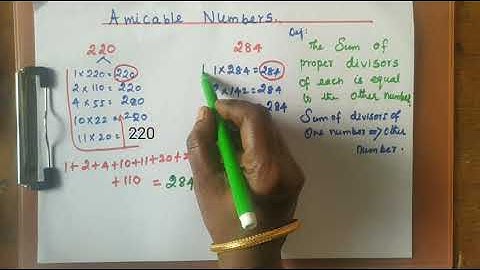 Amicable Numbers.
220
1 x 220 = 220
2 x 110 = 220
4 x 55 = 220
10 x 22 = 220
11 x 20 = 220
1+2+4+10+11+20+2
+110 = 284
284
1 x 284 = 284
2 x 142 = 284
284
Def:
The Sum of
proper divisors
of each is equal
to the other number
Sum of divisors of
One number => other
number.